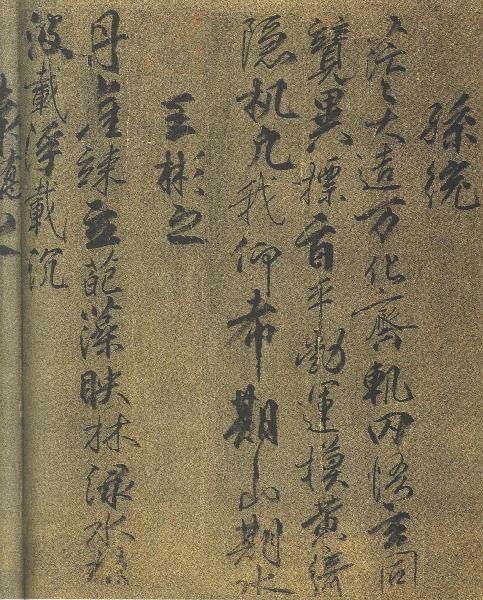 孫統
茫〻大造万化齊軌罔悟玄同
競異摽旨平勃運摸黄綺
隐机凢我仰希期山期水
王彬之
丹崖竦立葩藻映林渌水揚
波載浮載沉